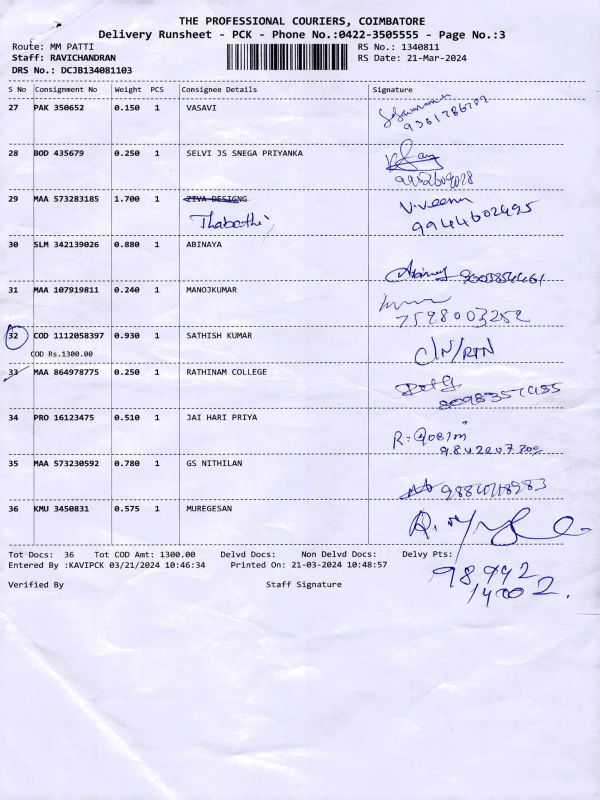 THE PROFESSIONAL COURIERS, COIMBATORE
Delivery Runsheet - PCK - Phone No.:0422-3505555 - Page No.:3
Route: MM PATTI RS No.: 1340811
Staff: RAVICHANDRAN RS Date: 21-Mar-2024
DRS No.: DCJB134081103
S No Consignment No Weight PCS Consignee Details Signature
27 PAK 350652 0.150 1 VASAVI
28 BOD 435679 0.250 1 SELVI JS SNEGA PRIYANKA
9952609028
29 MAA 573283185 1.700 1 ZIVA DESIGNG V.Veena
Thabathi 9944602495
30 SLM 342139026 0.880 1 ABINAYA
31 MAA 107919811 0.240 1 MANOJKUMAR
7598003252
32 COD 1112058397 0.930 1 SATHISH KUMAR C/N/RTN
COD Rs.1300.00
33 MAA 864978775 0.250 1 RATHINAM COLLEGE
34 PRO 16123475 0.510 1 JAI HARI PRIYA
35 MAA 573230592 0.780 1 GS NITHILAN
36 KMU 3450831 0.575 1 MUREGESAN
Tot Docs: 36 Tot COD Amt: 1300.00 Delvd Docs: Non Delvd Docs: Delvy Pts:
Entered By :KAVIPCK 03/21/2024 10:46:34 Printed On: 21-03-2024 10:48:57
98942
14002.
Verified By Staff Signature